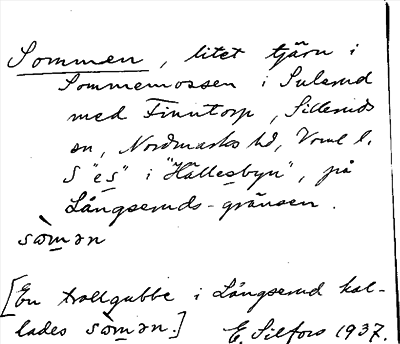 Sommen, litet tjärn i
Sommemossen i Sulerud
med Finntorp, Silleruds
sn, Nordmarks hd, Vrml l.
S "es" i "Hällesbyn", på
Långseruds-gränsen.
sòmən
[En trollgubbe i Långserud kal-
lades sòmən.] E. Silfors 1937.